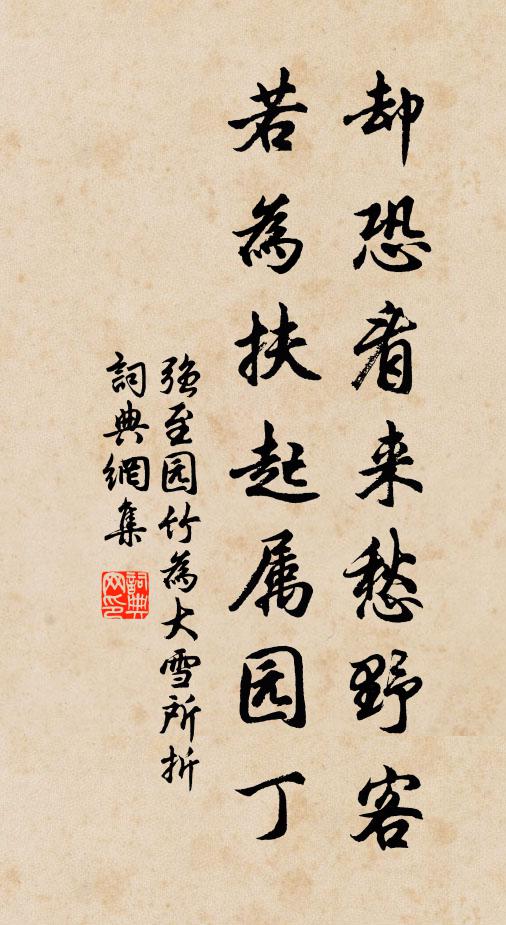 却恐看来愁野客
若為扶起属园丁
强至园竹為大雪所折
詞典網集
詞典网印